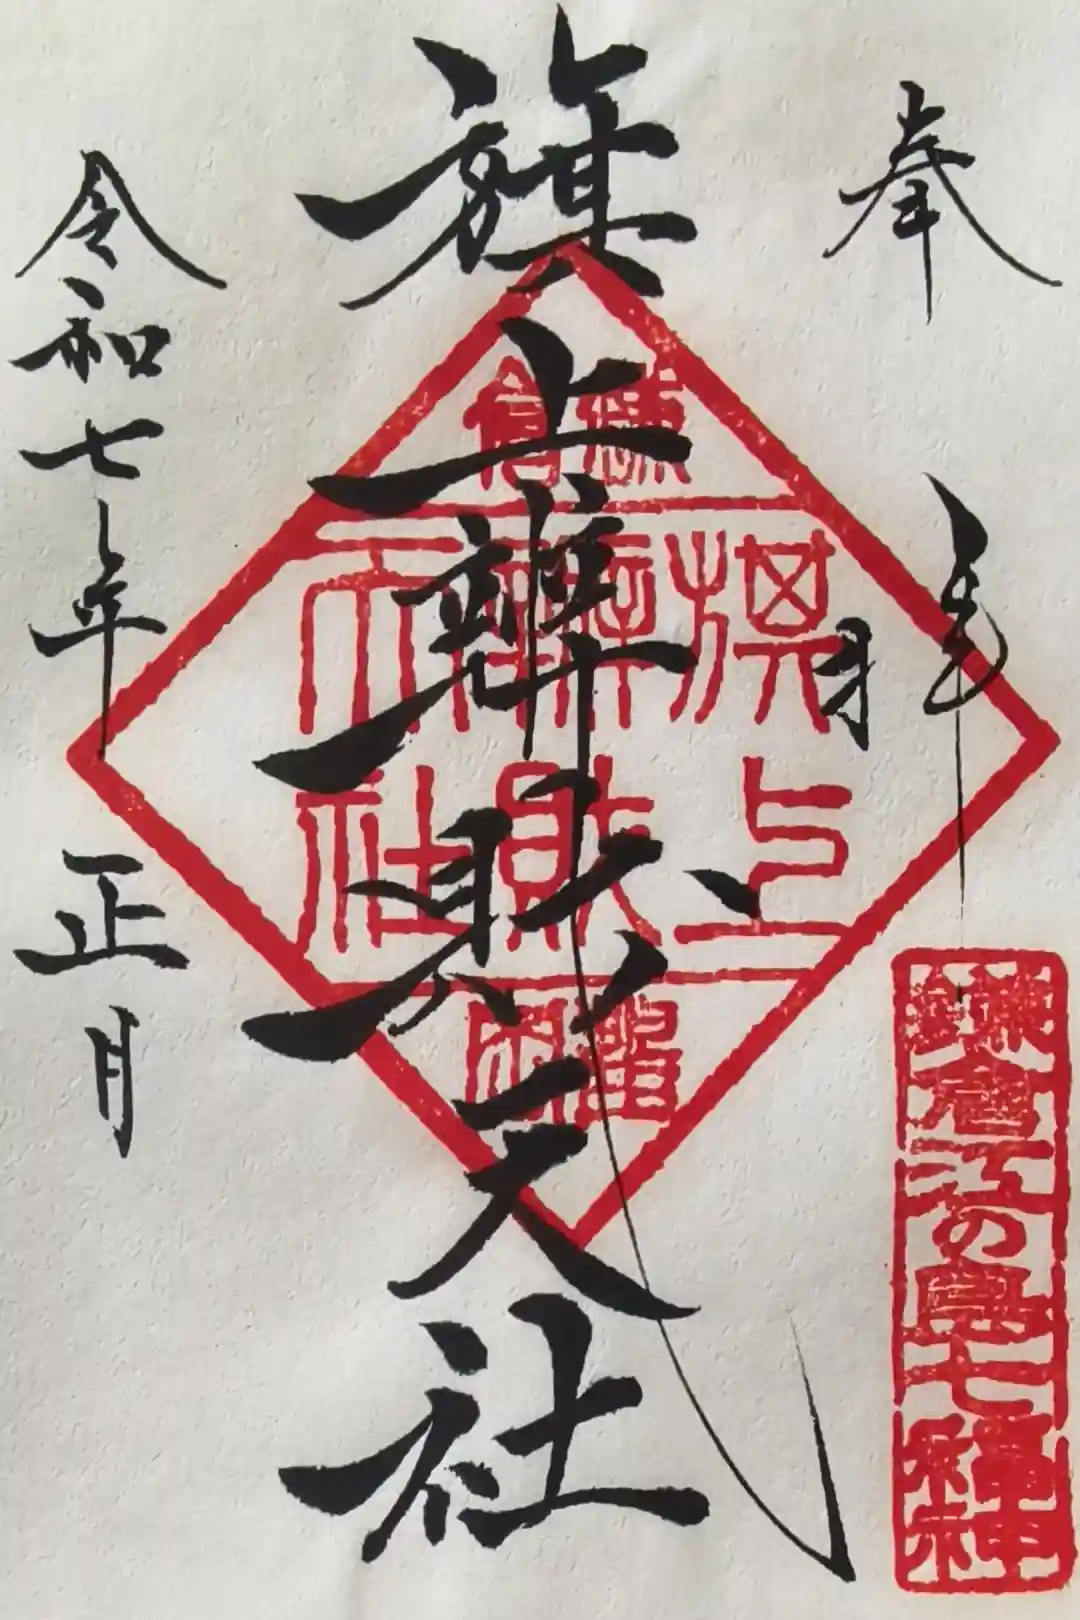 奉拝
鎌倉江の島七福神
旗上辨財天社
鎌倉
旗上
辨財
天社
令和七年 正月